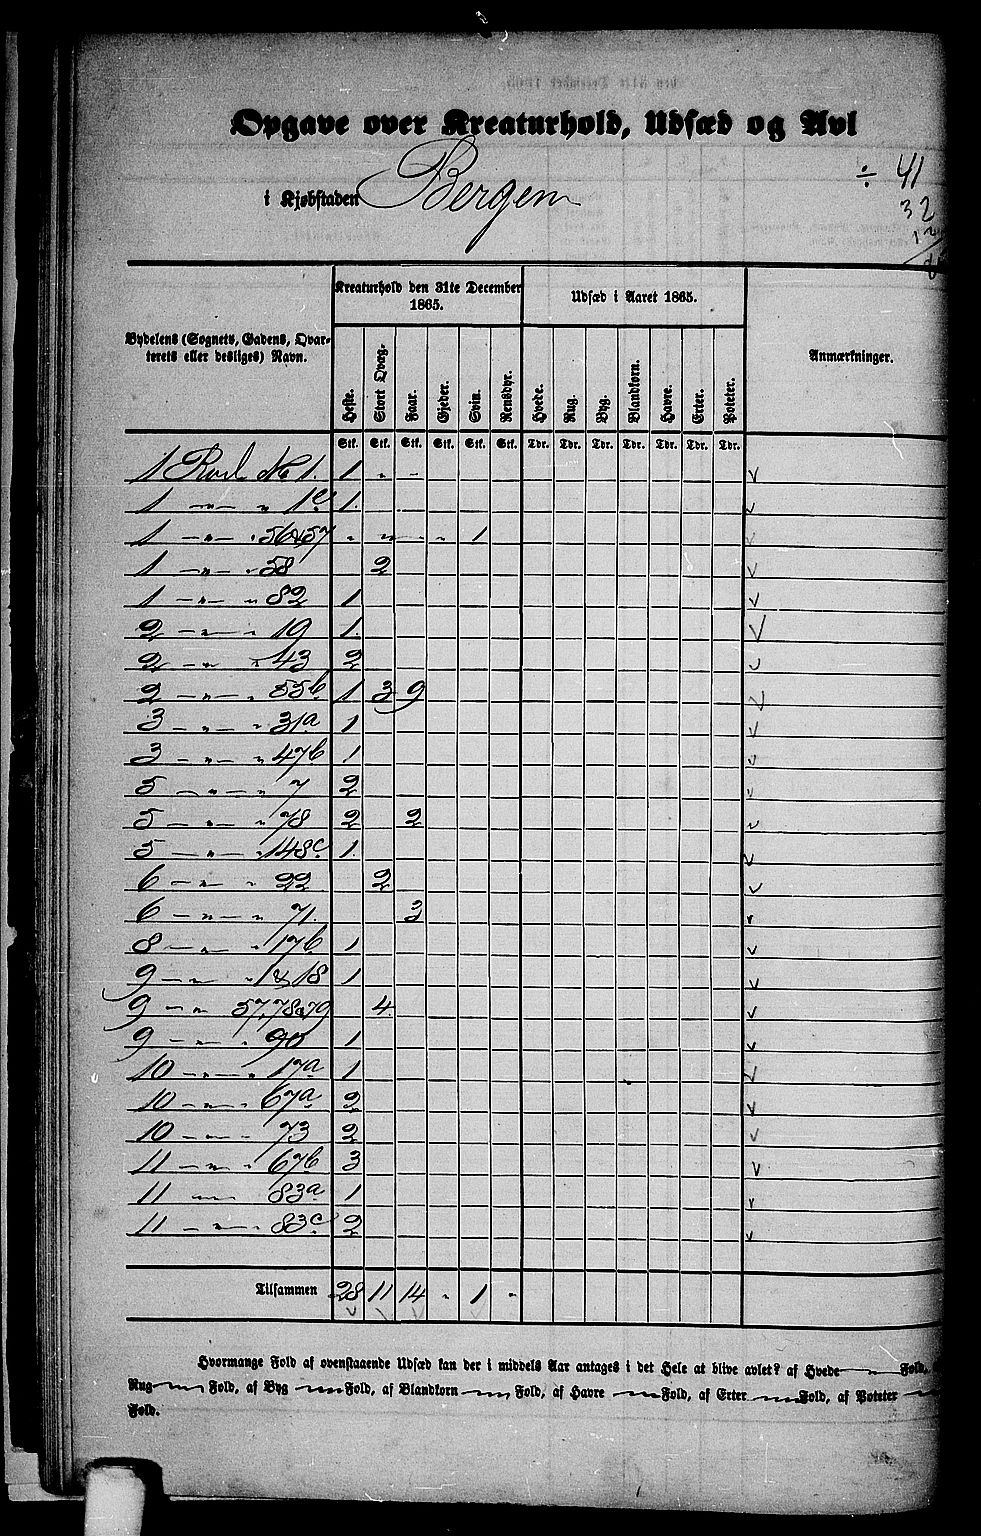 Opgave over Kreaturhold, Udsæd og Avl
÷ 41
i Kjøbstaden Bergen
32
Kreaturhold den 31te December 1865.
Udsæd i Aaret 1865.
Bydelens (Sognets, Gadens, Qvar-
terets eller desliges) Navn.
Anmærkninger.
Heste. Stort Qvæg. Faar. Gjeder. Svin. Rensdyr. Hvede. Rug. Byg. Blandkorn. Havre. Erter. Poteter.
Stk. Stk. Stk. Stk. Stk. Stk. Tdr. Tdr. Tdr. Tdr. Tdr. Tdr. Tdr.
1 Rode No 1. 1 " " v
1 — " — " 1c 1. v
1 — " — " 56&57 " " " " 1 v
1 — " — " 58 2 v
1 — " — " 82 1 v
2 — " — " 19 1. v
2 — " — " 43 2 v
2 — " — " 55b 1 3 9 v
3 — " — " 31a 1 v
3 — " — " 47b 1 v
5 — " — " 7 2 v
5 — " — " 78 2 2 v
5 — " — " 148c 1. v
6 — " — " 22 2 v
6 — " — " 71. 3 v
8 — " — " 17b 1 v
9 — " — " 1&18 1 v
9 — " — 57,78&79 4 v
9 — " — " 90 1 v
10 — " — " 17a 1 v
10 — " — " 67a 2 v
10 — " — " 73 2 v
11 — " — " 67b 3 v
11 — " — 83a 1 v
11 — " — " 83c 2 v
Tilsammen 28 11 14 " 1 "
Hvormange Fold af ovenstaaende Udsæd kan der i middels Aar antages i det Hele at blive avlet? af Hvede — " — Fold,
Rug — " — Fold, af Byg — " — Fold, af Blandkorn — " — Fold, af Havre — " — Fold, af Erter — " — Fold, af Poteter — " —
Fold.